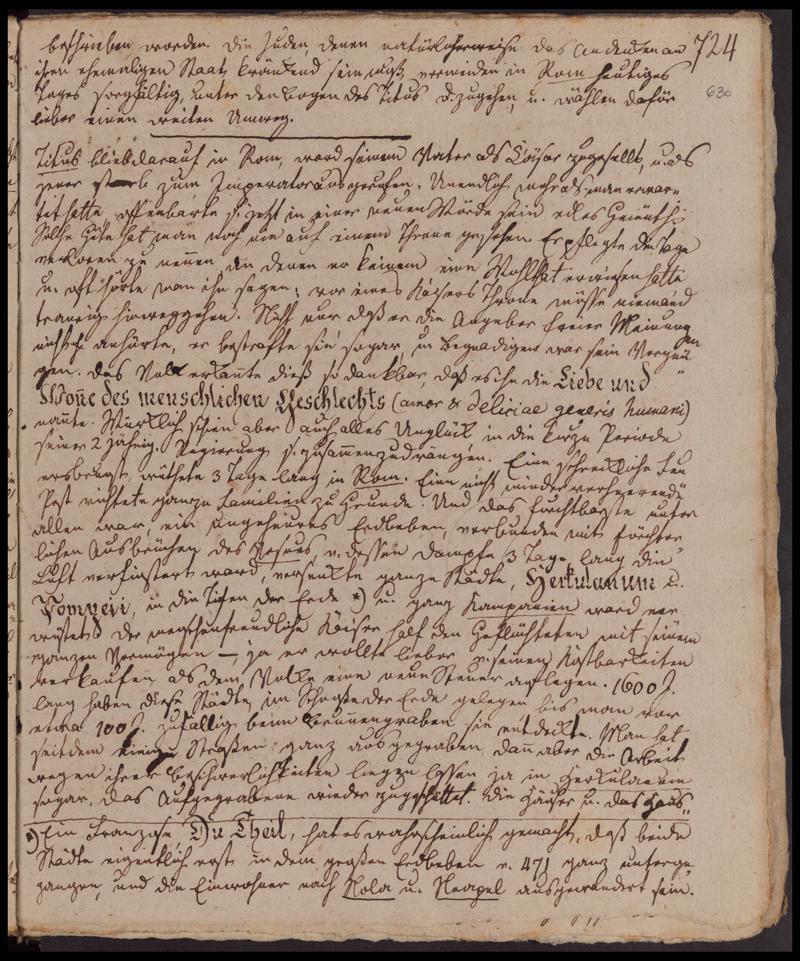 beschrieben worden. Die Juden, denen natürlicherweise das Andenken an 724
ihren ehemaligen Staat kränkend sein muß, vermeiden in Rom heutiges
Tages sorgfältig, unter den Bogen des Titus d. zugehen, u. wählen dafür 630
lieber einen weiten Umweg.
Titus blieb darauf in Rom, ward seinem Vater als Cäsar zugesellt, u. als
jener starb zum Imperator ausgerufen. Unendlich mehr als man erwar-
tet hatte offenbarte sich jetzt in seiner neuen Würde sein edles Gemüth.
Solche Güte hat man noch nie auf einem Throne gesehen. Er pflegte den Tage
verloren zu nennen an denen er keinem eine Wohlthat erwiesen hatte
u. oft hörte man ihn sagen: vor eines Kaisers Throne müsse niemand
traurig hinweggehen. Nicht nur daß er die Angeber freier Meinungen
nicht anhörte, er bestrafte sie sogar, u. Begnadigen war sein Vergnü
gen. Das Volk erkannte dieß so dankbar, daß es ihn die Liebe und
Wonne des menschlichen Geschlechts (amor & deliciae generis humani)
nannte. Würklich schien aber auch alles Unglück in die kurze Periode
seiner 2 jährig. Regierung sich zusammenzudrängen. Eine schreckliche Feu
ersbrunst wüthete 3 Tage lang in Rom. Eine nicht minder verheerende
Pest richtete ganze Familien zu Grunde. Und das furchtbarste unter
allen war, ein ungeheures Erdbeben, verbunden mit fürchter
lichen Ausbrüchen des Vesuvs, v. dessen Dampfe 3 Tage lang die
Luft verfinstert ward, versenkte ganze Städte, Herkulanum u.
Pompeji, in die Tiefen der Erde *) u. ganz Kampanien ward ver
wüstet. Der menschenfreundliche Kaiser half den Geflüchteten mit seinem
ganzen Vermögen –, ja er wollte lieber seinen Kostbarkeiten
verkaufen, als dem Volke eine neue Steuer auflegen. 1600 J.
lang haben diese Städte im Schooße der Erde gelegen bis man vor
etwa 100 J. zufällig beim Brunnengraben sie entdeckte. Man hat
seitdem einige Straßen ganz ausgegraben, dann aber die Arbeit
wegen ihrer Beschwerlichkeiten liegen lassen ja in Herkulanum
sogar, das Aufgegrabene wieder zugeschüttet. Die Häuser u. das Haus"
*) Ein Franzose Du Theil, hat es wahrscheinlich gemacht, daß beide
Städte eigentlich erst in dem großen Erdbeben v. 471 ganz unterge
gangen, und die Einwohner nach Nola u. Neapel ausgewandert sein.